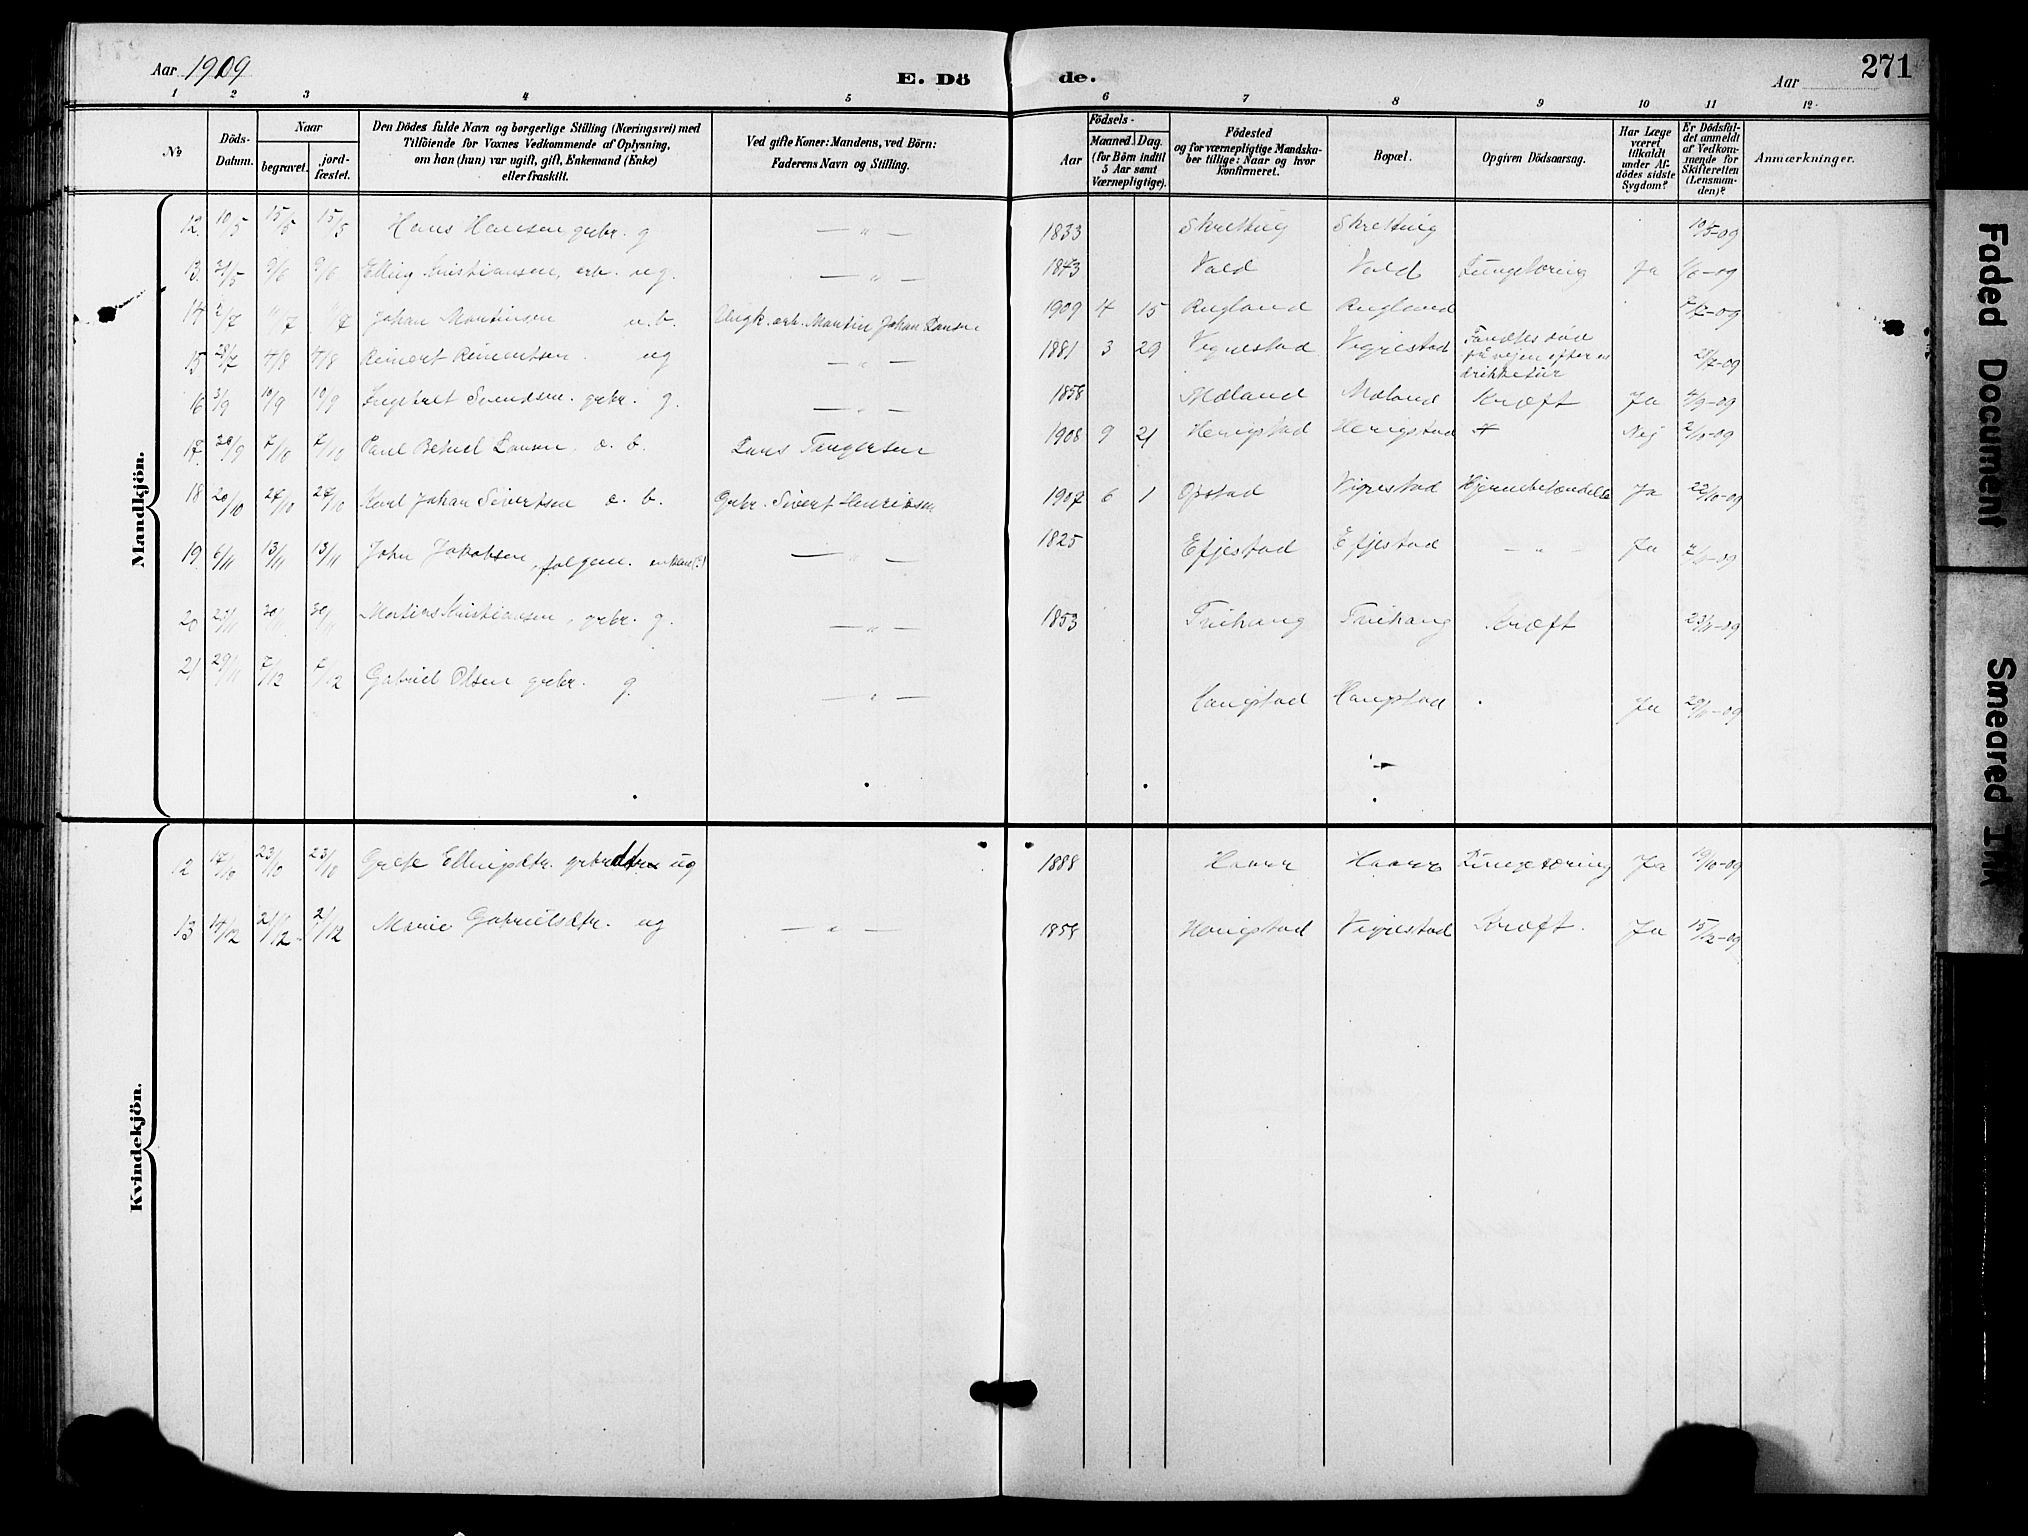 Aar 1909
E. Dö de.
Aar
271
1 2 3 4 5 6 7 8 9 10 11 12
No
Döds-Datum.
Naar
begravet.
jord-fæstet.
Den Dödes fulde Navn og borgerlige Stilling (Næringsvei) med
Tilföiende for Voxnes Vedkommende af Oplysning,
om han (hun) var ugift, gift, Enkemand (Enke)
eller fraskilt.
Ved gifte Koner: Mandens, ved Börn:
Faderens Navn og Stilling.
Födsels-
Aar
Maaned. Dag.
(for Börn indtil
5 Aar samt
Værnepligtige).
Födested
og for værnepligtige Mandska-
ber tillige: Naar og hvor
konfirmeret.
Bopæl.
Opgiven Dödsaarsag.
Har Læge
været
tilkaldt
under Af-
dödes sidste
Sygdom?
Er Dödsfal-
det anmeldt
af Vedkom-
mende for
Skifteretten
(Lensman-
den)?
Anmærkninger.
Mandkjön.
12. 10/5 15/5 15/5 Hans Hansen grbr. g — " — 1833 Skretting Skretting 10/5-09
13. 31/5 9/6 9/6 Elling Kristiansen, arb. ug. — " — 1873 Vold Vold Lungetæring Ja 1/6-09
14 2/7 11/7 11/7 Johan Martinsen u.b. Martin Johan Larsen 1909 4 15 Rugland Rugland 7/7-09
15 28/7 4/8 4/8 Reinert Reinertsen ug — " — 1881 3 29 Vigrestad Vigrestad Fandtes död
på vejen efter en
drikketur 29/7-09
16 3/9 10/9 10/9 Ingebret Svendsen grbr. g. — " — 1858 Mæland Mæland Kræft Ja 4/9-09
17. 28/9 7/10 7/10 Paul Betuel Larsen e. b. Lars Tangersen 1908 9 21 Herigstad Herigstad Nej 2/10-09
18 20/10 27/10 27/10 Karl Johan Sivertsen e. b. Grbr. Sivert Henriksen 1907 6 1 Opstad Vigrestad Hjernebetændelse Ja 22/10-09
19. 6/11 13/11 13/11 John Jakobsen, folgem. — " — 1825 Efjestad Efjestad — " — Ja 7/11-09
20 23/11 30/11 30/11 Matias Kristiansen, grbr. g. — " — 1853 Tuihaug Tuihaug Kræft 23/11-09
21 29/11 7/12 7/12 Gabriel Olsen grbr. g. — " — Haugstad Haugstad Ja 29/11-09
Kvindekjön.
12 17/10 23/10 23/10 Grete Ellingsdtr. grbrdtr ug 1888 Haarr Haarr Lungetæring Ja 19/10-09
13 14/12 21/12 21/12 Marie Gabrielsdtr. ug — " — 1858 Haugstad Vigrestad Kræft. Ja 15/12-09
Faded Document
Smeared Ink